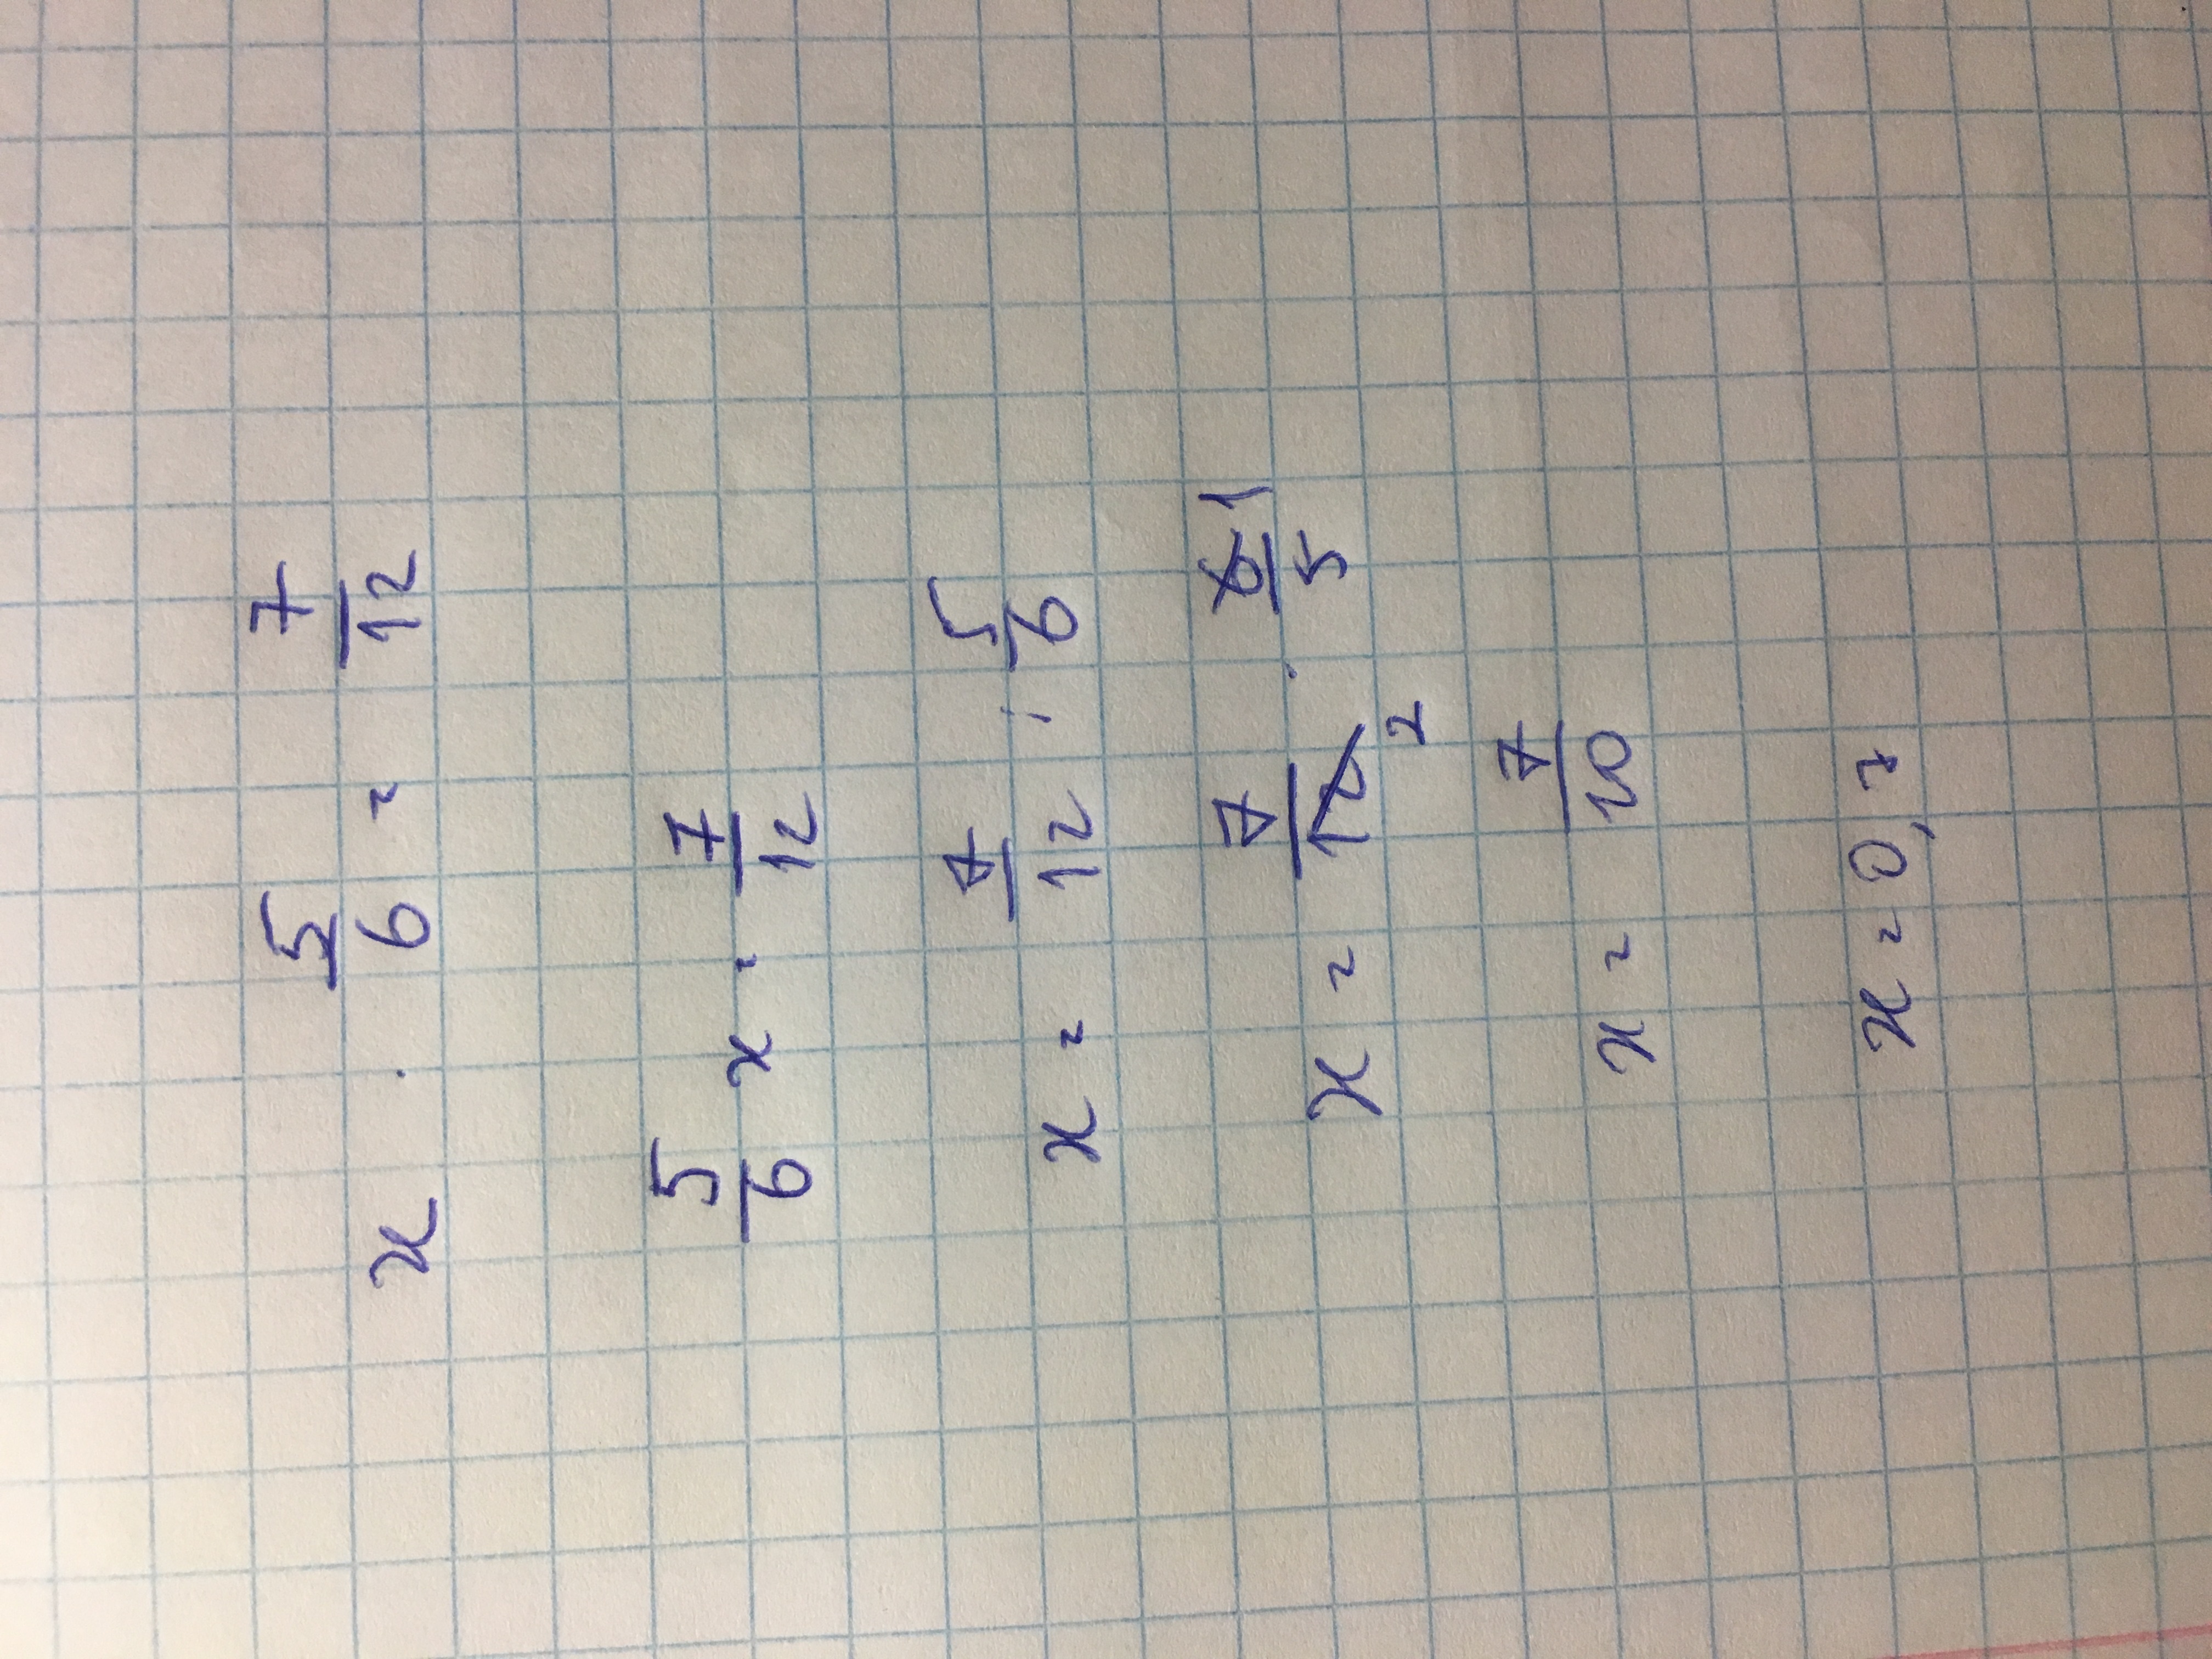 x · 5/6 = 7/12
5/6 x = 7/12
x = 7/12 : 5/6
x = 7/12 2 · 6/5 1
x = 7/10
x = 0,7